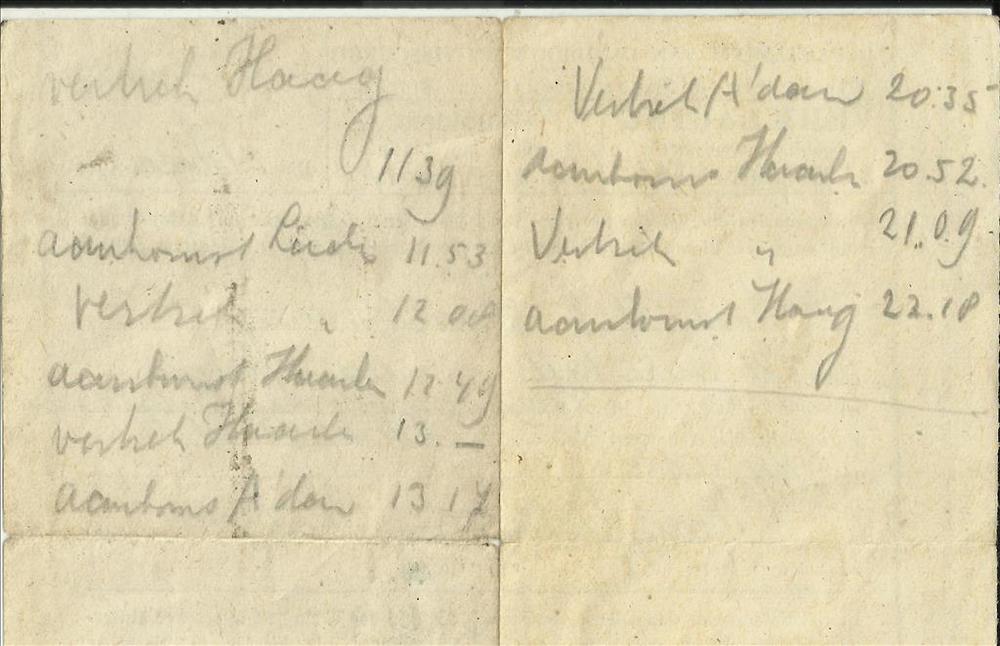 vertrek Haag
11 39
aankomst Leiden 11.53
Vertrek " 12 08
aankomst Haarlem 12 49
vertrek Haarlem 13. —
aankoms A'dam 13 17
Vertrek A'dam 20.35
aankoms Haarlm 20.52.
Vertrek " 21.09
aankomst Haag 22.18